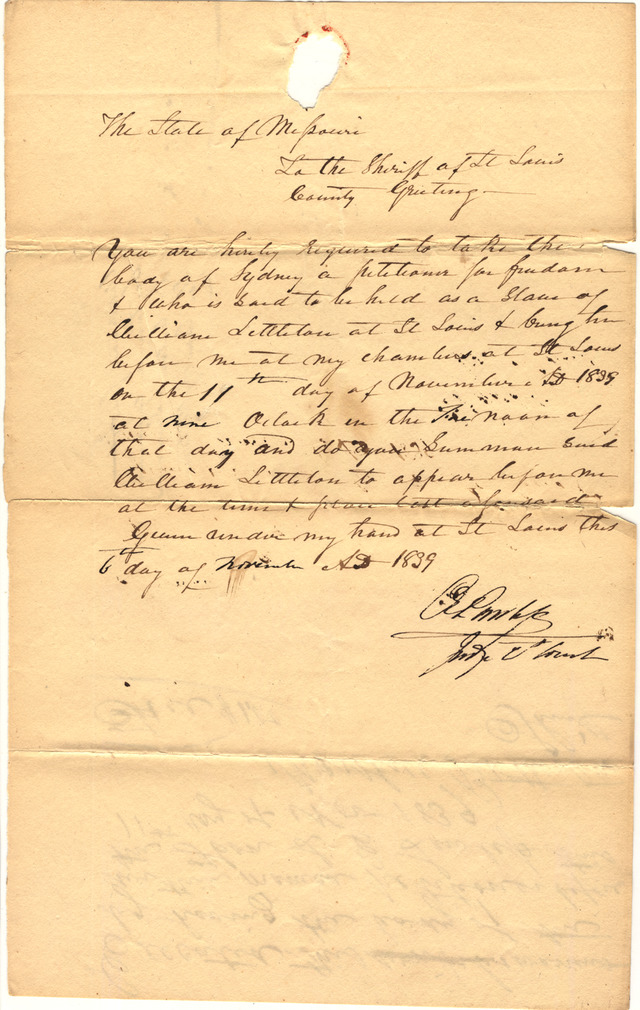 The State of Missouri
To the Sheriff of St Louis
County Greeting
You are hereby required to take the
body of Sydney a petitioner for freedom
& who is said to be held as a Slave of
William Littleton at St Louis & bring him
before me at my chambers at St Louis
on the 11th day of November AD 1839
at nine Oclock in the Forenoon of
that day and do you Summon said
William Littleton to appear before me
at the time & place last aforesaid
Given under my hand at St Louis this
6th day of November AD 1839
Judge